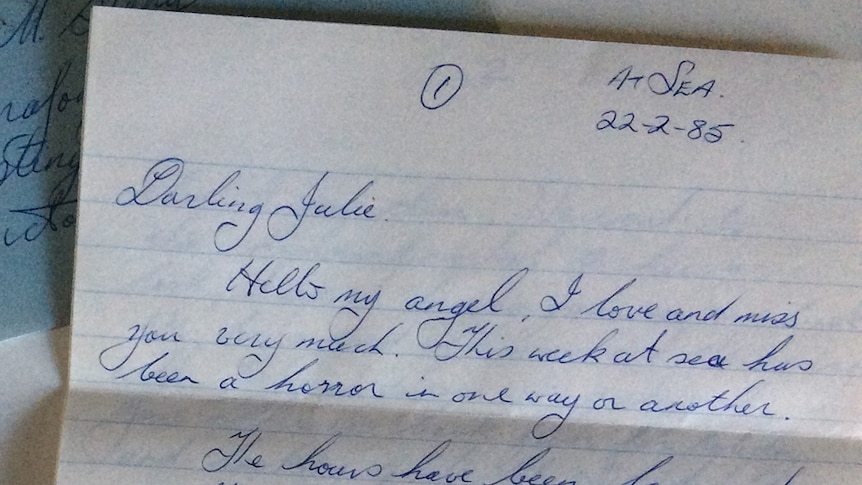 ①
At SEA.
22-2-85.
Darling Julie.
Hello my angel, I love and miss
you very much. This week at sea has
been a horror in one way or another.
The hours have been